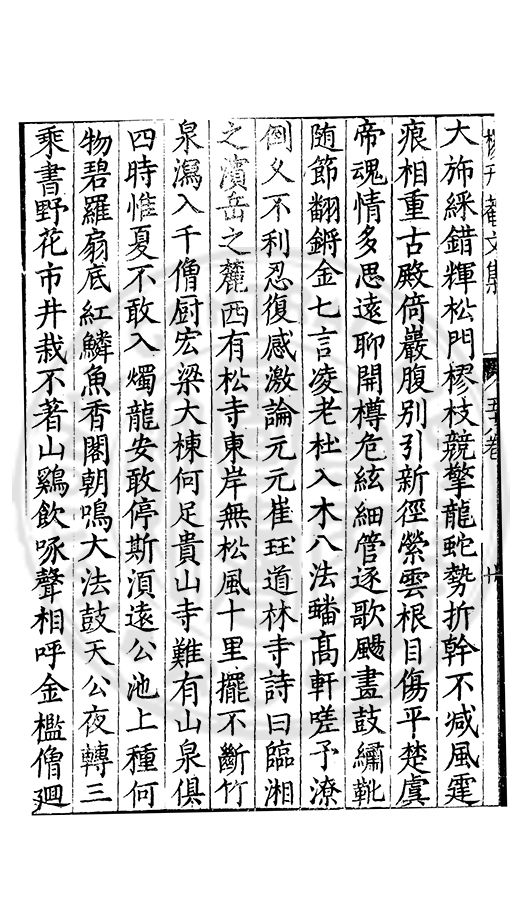 楊升菴文集 五十八卷
大斾綵錯輝松門樛枝競擎龍蛇勢折幹不減風霆
痕相重古殿倚巖腹别引新徑縈雲根目傷平楚虞
帝魂情多思遠聊開樽危絃細管逐歌颺畫鼓繡靴
随節翻鏘金七言凌老杜入木八法蟠高軒嗟予潦
倒久不利忍復感激論元元崔珏道林寺詩曰臨湘
之濱岳之麓西有松寺東岸無松風十里擺不斷竹
泉瀉入千僧厨宏梁大棟何足貴山寺難有山泉俱
四時惟夏不敢入燭龍安敢停斯湏遠公池上種何
物碧羅扇底紅鱗魚香閣朝鳴大法鼓天公夜轉三
乘書野花市井栽不著山鷄飲啄聲相呼金檻僧廻